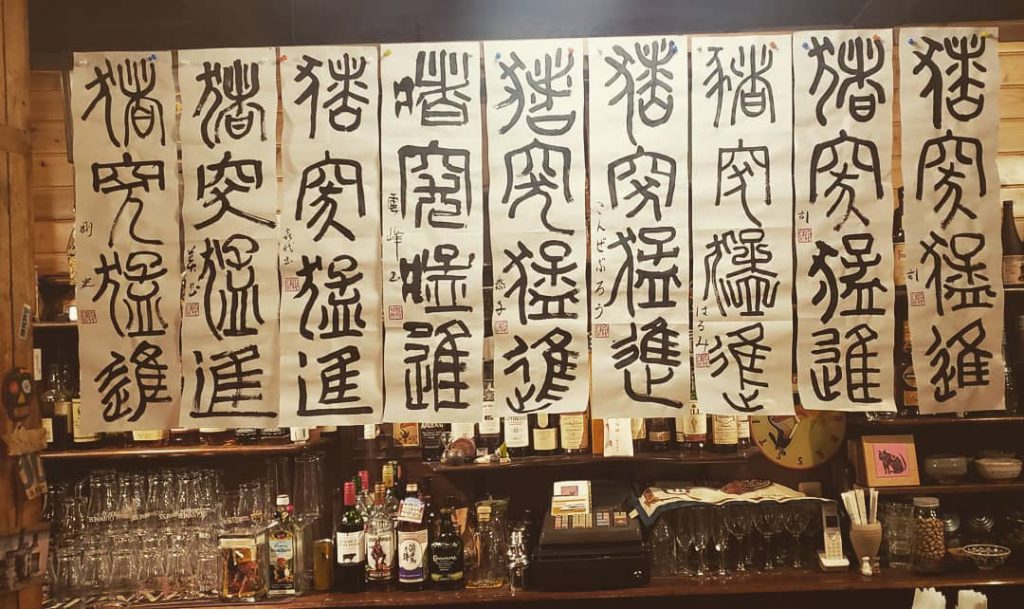 猪突猛進
猪突猛進
猪突猛進
はるみ
猪突猛進
こんぜぶろう
猪突猛進
恭子
猪突猛進
雲峰
猪突猛進
猪突猛進
猪突猛進